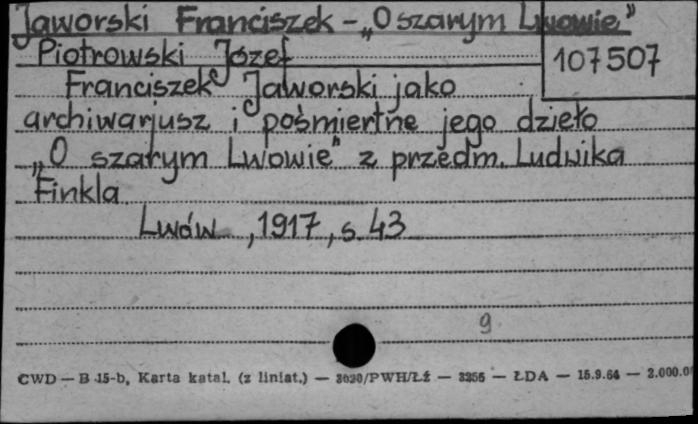 Jaworski Franciszek - „O szarym Lwowie"
Piotrowski Józef
107507
Franciszek Jaworski jako
archiwarjusz i pośmiertne jego dzieło
„O szarym Lwowie" z przedm. Ludwika
Finkla
Lwów, 1917, s. 43
9
CWD — B 15-b, Karta katal. (z liniat.) — 3620/PWH/Łź — 3256 — ŁDA — 15.9.64 — 2.000.0